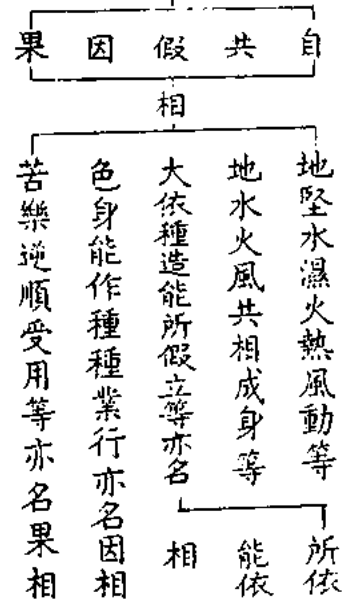 自共假因果
相
地堅水濕火熱風動等
地水火風共相成身等
大依種造能所假立等亦名
色身能作種種業行亦名因相
苦樂逆順受用等亦名果相
所依
能依
相